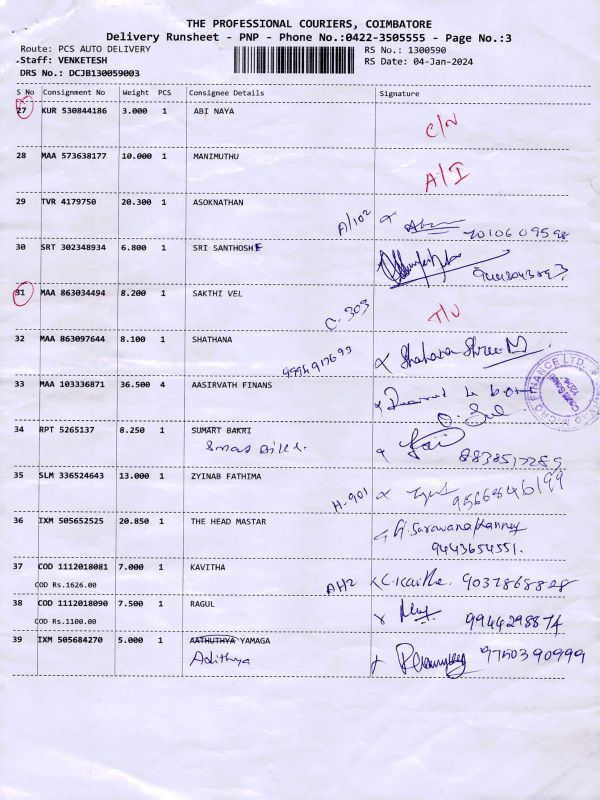 THE PROFESSIONAL COURIERS, COIMBATORE
Delivery Runsheet - PNP - Phone No.:0422-3505555 - Page No.:3
Route: PCS AUTO DELIVERY
RS No.: 1300590
Staff: VENKETESH
RS Date: 04-Jan-2024
DRS No.: DCJB130059003
S No Consignment No Weight PCS Consignee Details Signature
27 KUR 530844186 3.000 1 ABI NAYA C/N
28 MAA 573638177 10.000 1 MANIMUTHU A/I
29 TVR 4179750 20.300 1 ASOKNATHAN A/102
30 SRT 302348934 6.800 1 SRI SANTHOSHE
31 MAA 863034494 8.200 1 SAKTHI VEL C.303 T/U
32 MAA 863097644 8.100 1 SHATHANA
33 MAA 103336871 36.500 4 AASIRVATH FINANS
34 RPT 5265137 8.250 1 SUMART BAKRI
35 SLM 336524643 13.000 1 ZYINAB FATHIMA H-901 9566846199
36 IXM 505652525 20.850 1 THE HEAD MASTAR G. Saravana Kannan
9443654551.
37 COD 1112018081 7.000 1 KAVITHA AH2 9037868828
COD Rs.1626.00
38 COD 1112018090 7.500 1 RAGUL 9944298874
COD Rs.1100.00
39 IXM 505684270 5.000 1 AATHUTHYA YAMAGA 9750390999
Adithya